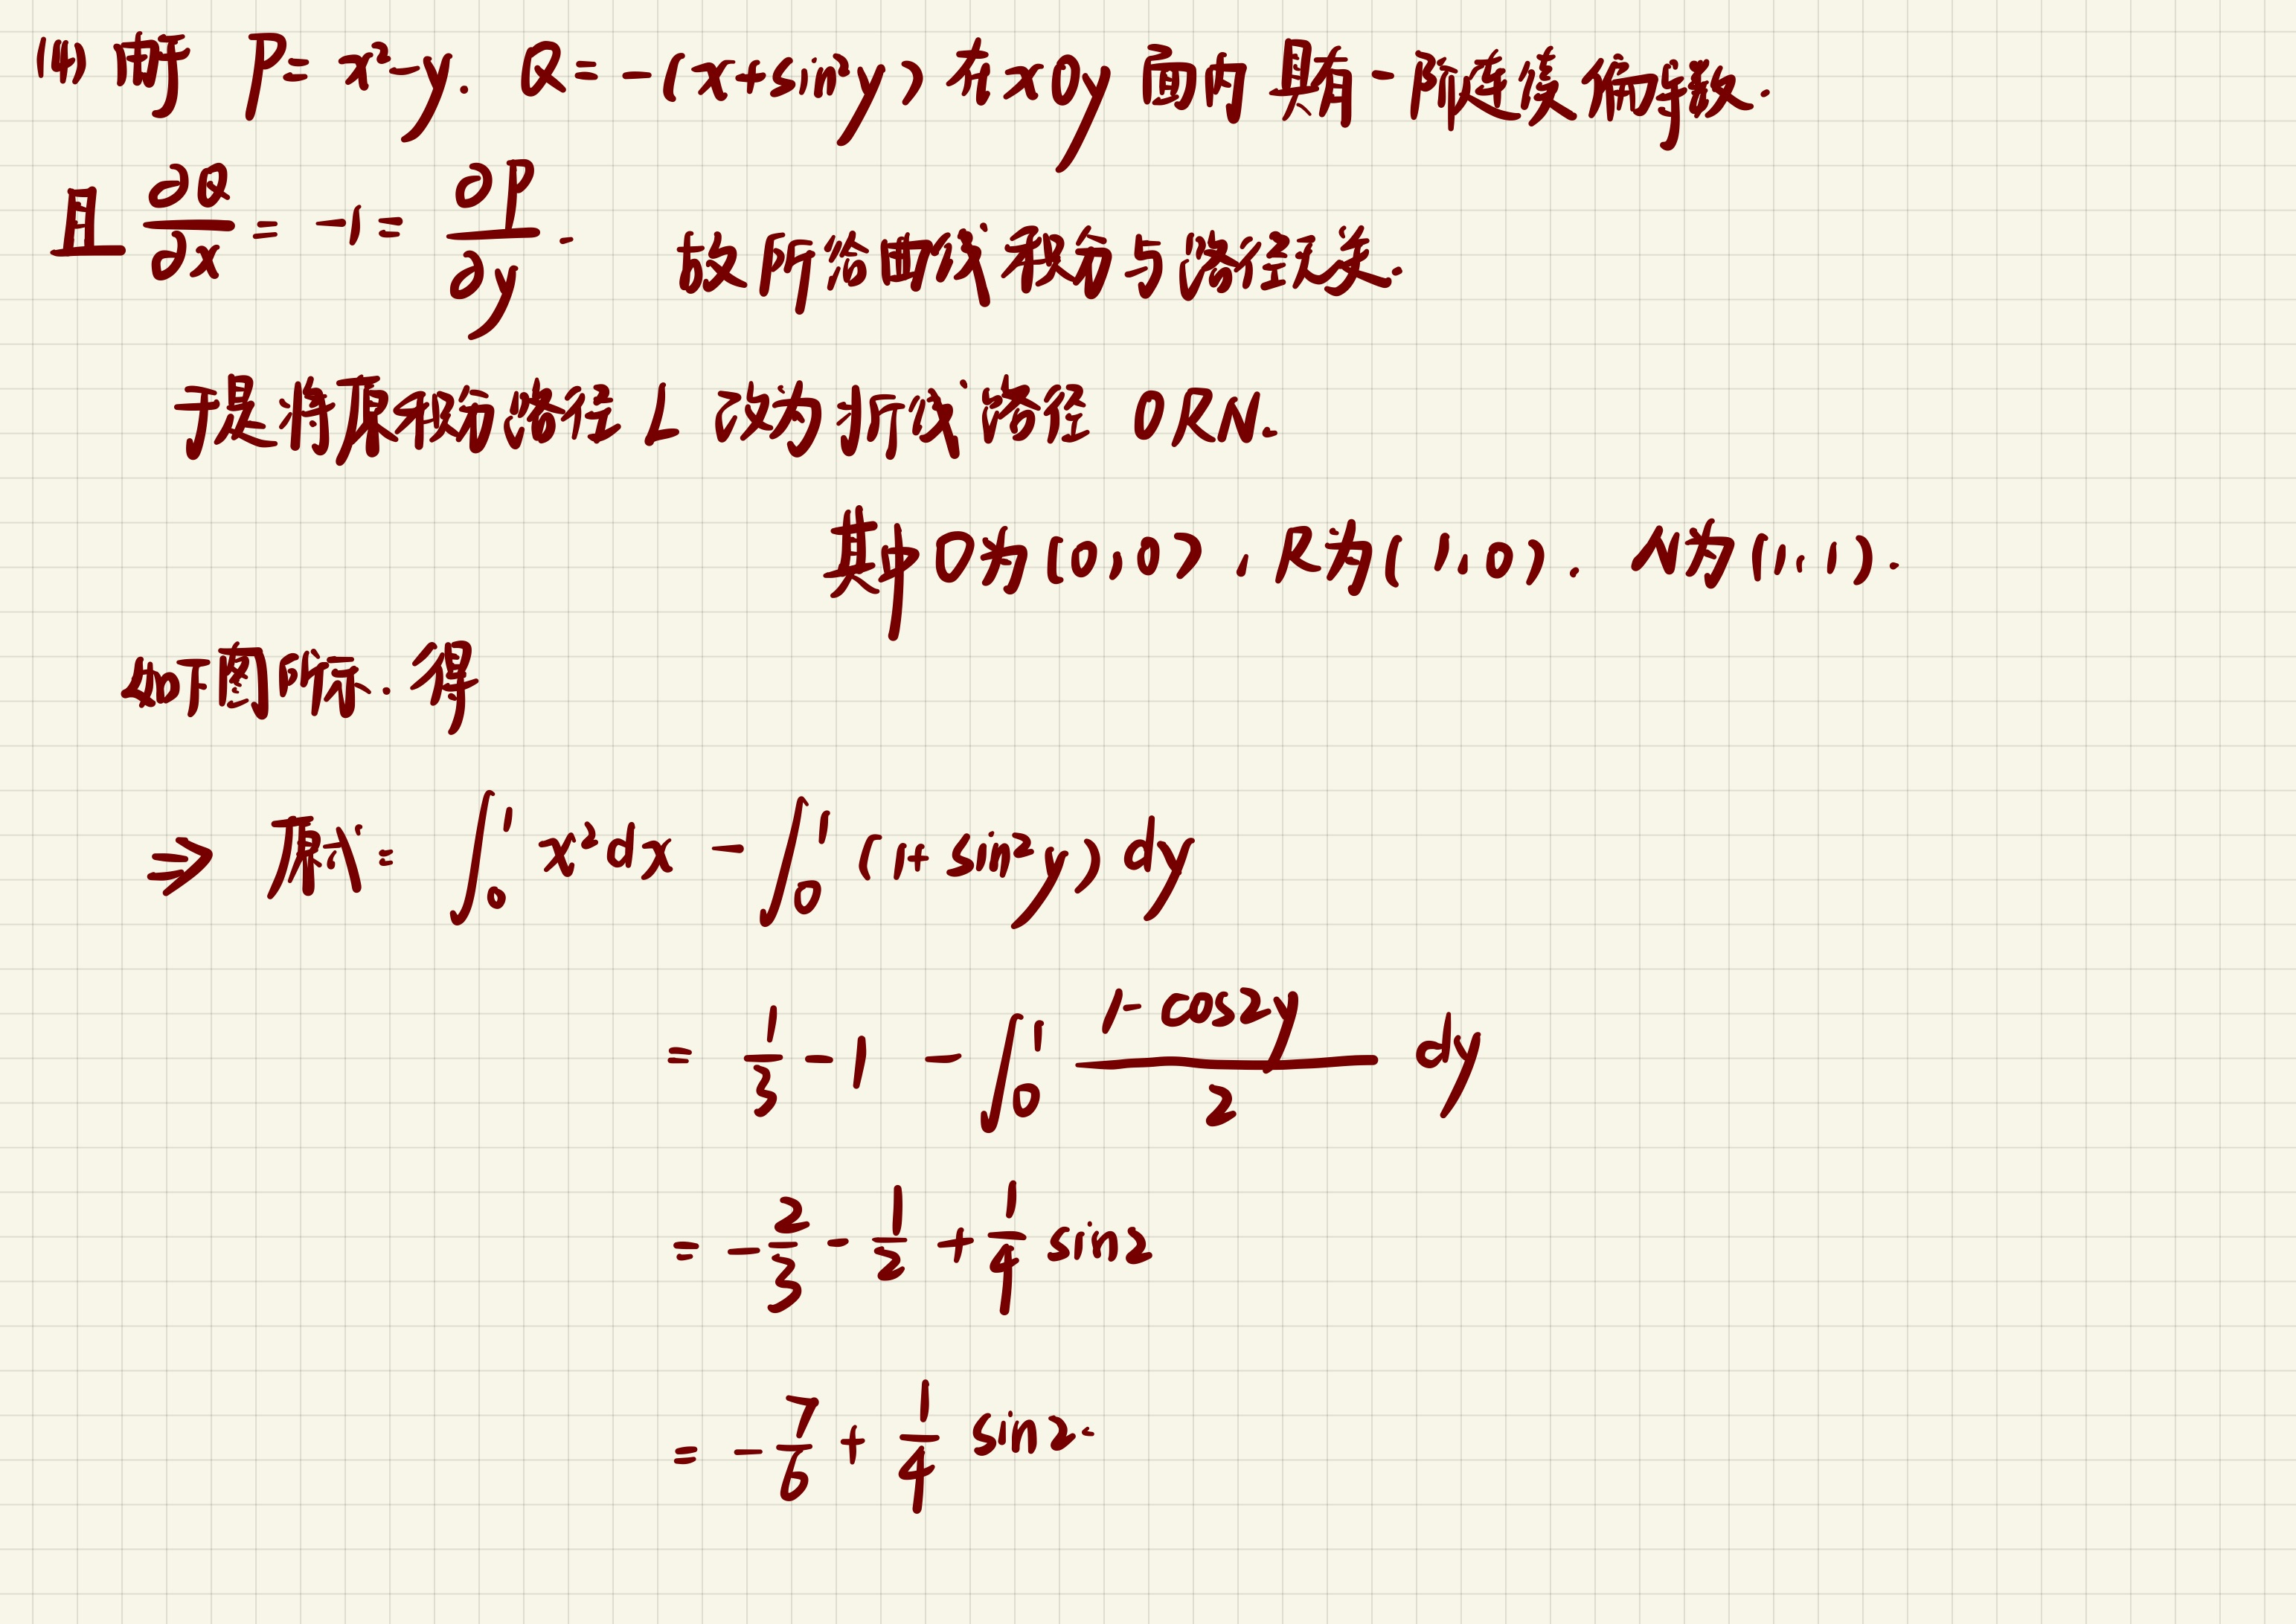 (4) 由于 P = x²-y. Q = -(x+sin²y) 在xOy面内具有一阶连续偏导数.
且 ∂Q/∂x = -1 = ∂P/∂y. 故所给曲线积分与路径无关.
于是将原积分路径 L 改为折线路径 ORN.
其中O为(0,0), R为(1,0). N为(1,1).
如下图所示. 得
⇒ 原式 = ∫₀¹ x²dx - ∫₀¹ (1+sin²y) dy
= 1/3 - 1 - ∫₀¹ (1-cos2y)/2 dy
= -2/3 - 1/2 + 1/4 sin2
= -7/6 + 1/4 sin2.